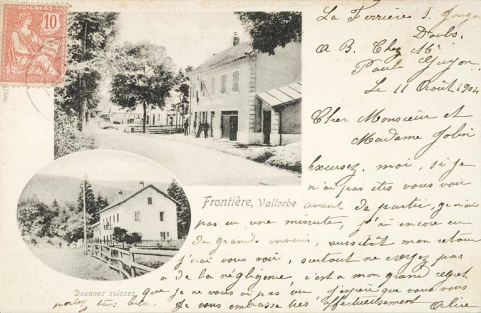 POSTES
10
La Ferrière s. Jougne
Doubs.
a B. Chez Mr
Paul Guyon
Le 11 Août 1904
Cher Monsieur et
Madame Jobin
Excusez-moi, si je
n'ai pas été vous voir
avant de partir, je n'ai
pas eu une minute, j'ai encore eu
de grands ennuis, aussitôt mon retour
j'irai vous voir, surtout ne croyez pas
a de la négligence, c'est a mon grand regret
que je ne vous ai pas vu j'espère que vous vous
portez très bien je vous embrasse très affectueusement
Alice
Frontière, Vallorbe
Douanes suisses